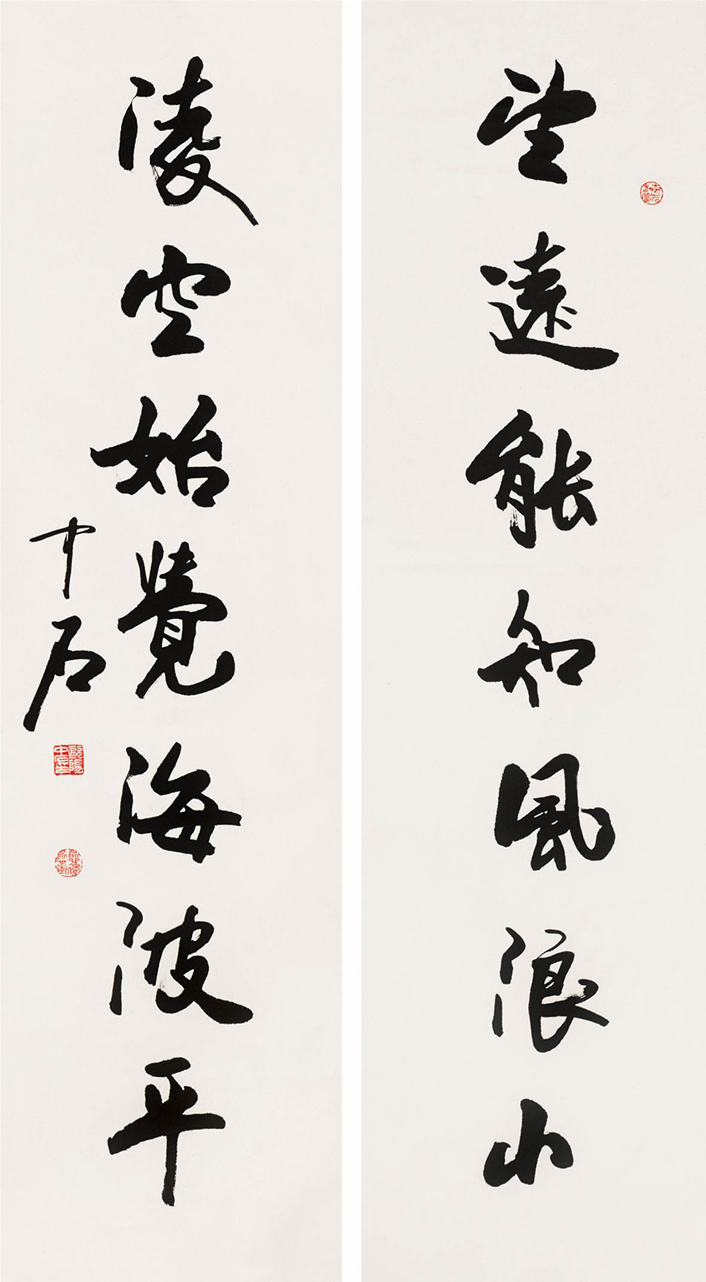 望遠能知風浪小
淩空始覺海波平
中石
歐陽中石